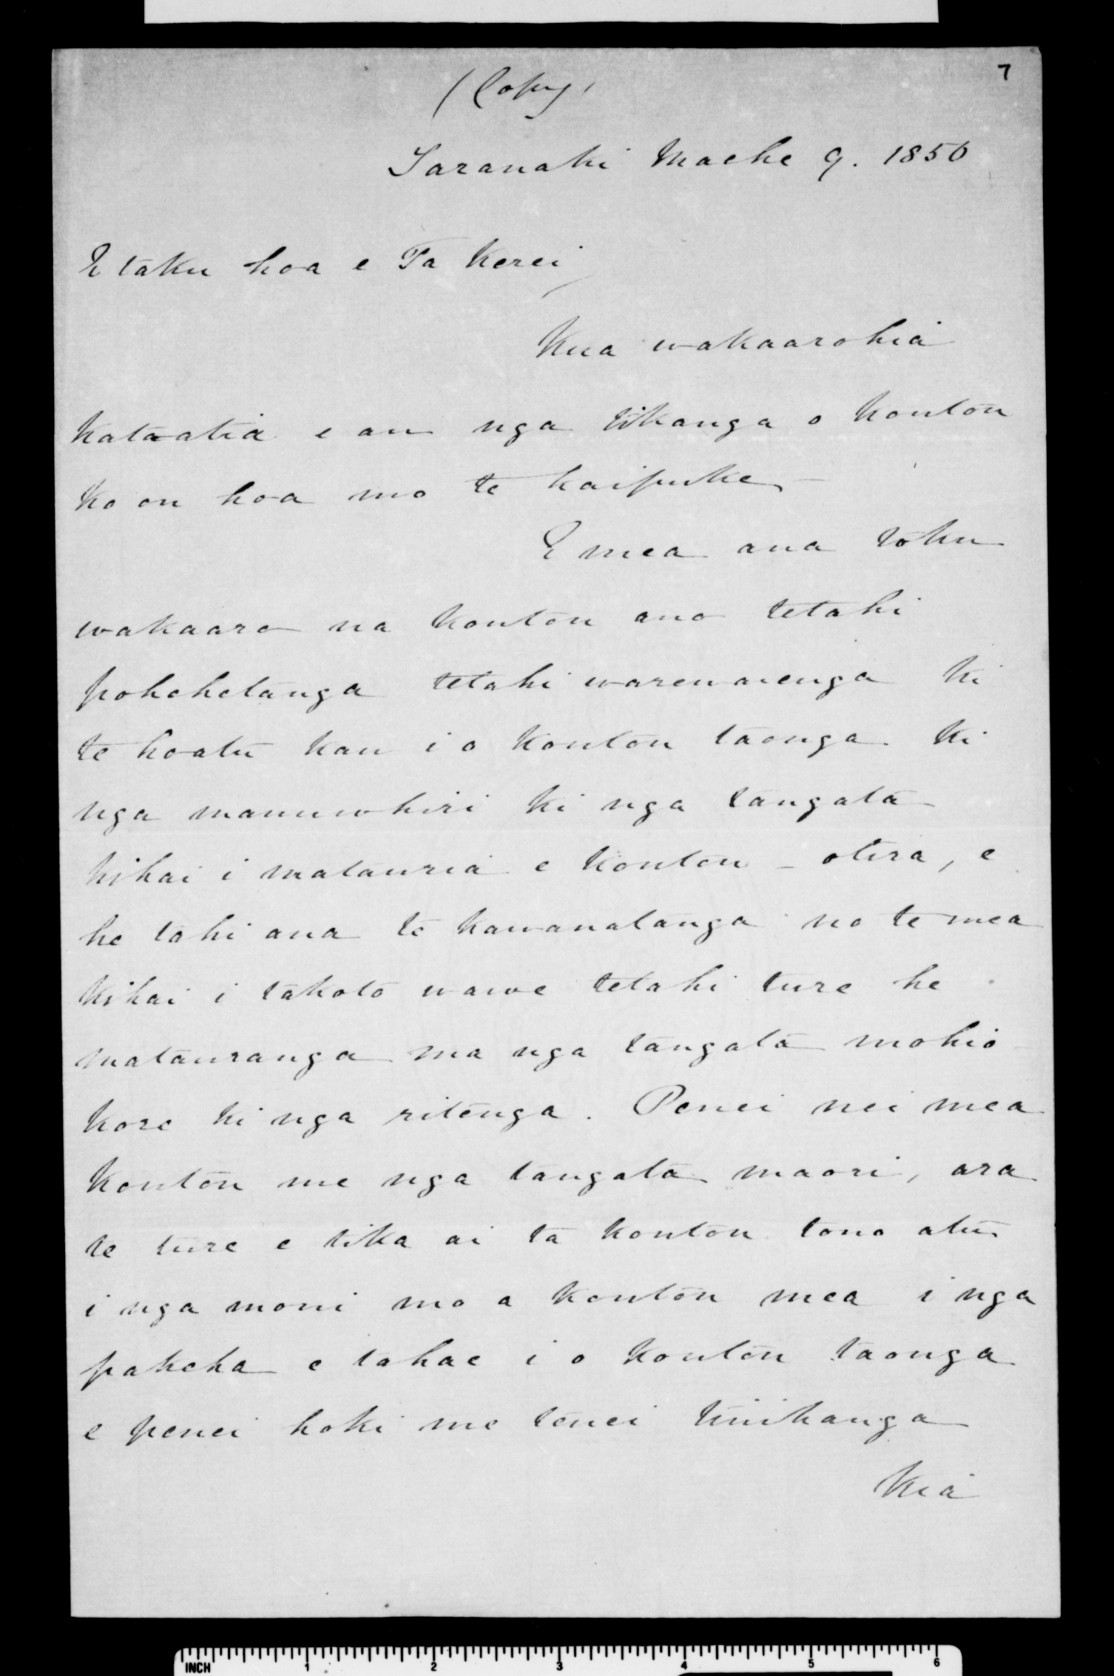 7
(Copy)
Taranaki Maehe 9. 1850
E taku hoa e Ta Kerei
Kua wakaarohia
katoatia e au nga tikanga o koutou
ko ou hoa mo te kaipuke
E mea ana toku
wakaaro na koutou ano tetahi
pohehetanga tetahi warewarenga ki
te hoatu kau i o koutou taonga ki
nga manuwhiri ki nga tangata
kihai i matauria e koutou - otira, e
he tahi ana te kawanatanga no te mea
kihai i takoto wawe tetahi ture he
matauranga ma nga tangata mohio
kore ki nga ritenga. Penei nei mea
koutou me nga tangata maori, ara
te ture e tika ai ta koutou tono atu
i nga moni mo a koutou mea i nga
pakeha e tahae i o koutou taonga
e penei hoki me tenei
Kia
INCH 1 2 3 4 5 6